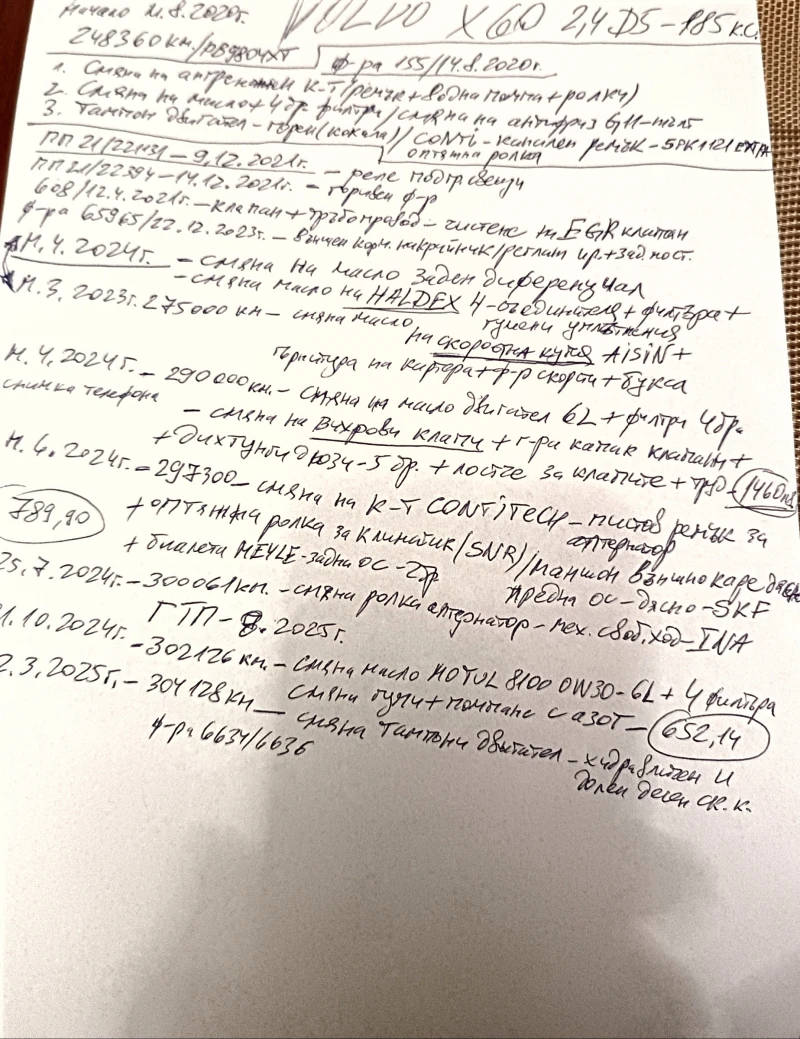 Начало 21.8.2020г. VOLVO X60 2,4 D5-185 к.с.
248360 км./PB9804XT ф-ра 155/14.8.2020г.
1. Смяна на ангренажен к-т (ремък + водна помпа + ролки)
2. Смяна на масло + 4 бр. филтри / смяна на антифриз G11-жълт
3. Тампон двигател - горен (кокала) // CONTI - канален ремък - 5PK1121 EXTRA
оптяжна ролка
ПП 21/22131 - 9.12.2021г. - реле подгр. свещи
ПП 21/22394 - 14.12.2021г. - горивен ф-р
608/12.4.2021г. - клапан + тръбопровод - чистене на EGR клапан
ф-ра 65965/22.12.2023г. - външен корм. накрайник / реглаж пр. + зад мост.
М.4.2024г. - смяна на масло заден диференциал
- смяна масло на HALDEX 4-съединителя + филтъра +
гумени уплътнения
М.3.2023г. 275000 км - смяна масло на скоростна кутия AISIN +
гарнитура на картера + ф-р скорти + букса
М.4.2024г. - 290000 км. - смяна на масло двигател 6L + филтри 4 бр.
снимка телефона - смяна на вихрови клапи + г-ри капак клапани +
+ дихтунги дюзи - 5 бр. + лостче за клапите + труд - 1460 лв
М.6.2024г. - 297300 - смяна на к-т CONTITECH - пистов ремък за
алтернатор
789,90 + оптяжна ролка за климатик (SNR) / маншон външно каре дясно
+ биалета MEYLE - задна ос - 2 бр предна ос - дясно - SKF
25.7.2024г. - 300061 км. - смяна ролка алтернатор - мех. своб. ход - INA
ГТП - 8.2025г.
1.10.2024г. - 302126 км. - смяна масло MOTUL 8100 0W30 - 6L + 4 филтъра
2.3.2025г. - 304128 км смяна гуми + помпане с азот - 652,14
ф-ра 6634/6636 - смяна тампони двигател - хидравличен и
долен десен ск. к.